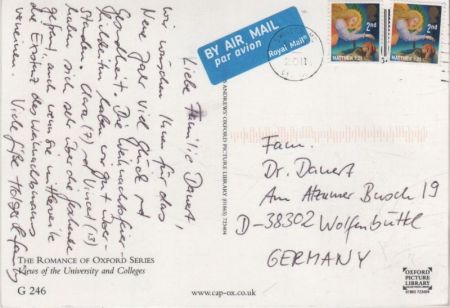 Liebe Familie Dauert,
wir wünschen Ihnen für das
Neue Jahr viel Glück und
Gesundheit. Die Weihnachtsfeier-
lichkeiten haben wir gut über-
standen. Clara (7) und Vincent (3)
haben sich sehr über die Geschenke
gefreut, auch wenn sie mittlerweile
die Existenz des Weihnachtsmanns
verneinen. Viele Grüße
BY AIR MAIL
par avion
Royal Mail
2011
2nd
MATTHEW 1:21
2nd
MATTHEW 1:21
ANDREWS OXFORD PICTURE LIBRARY (01865) 723404
Fam.
Dr. Dauert
Am Atzumer Busch 19
D-38302 Wolfenbüttel
GERMANY
THE ROMANCE OF OXFORD SERIES
Views of the University and Colleges
G 246
www.cap-ox.co.uk
OXFORD
PICTURE
LIBRARY
01865 723404